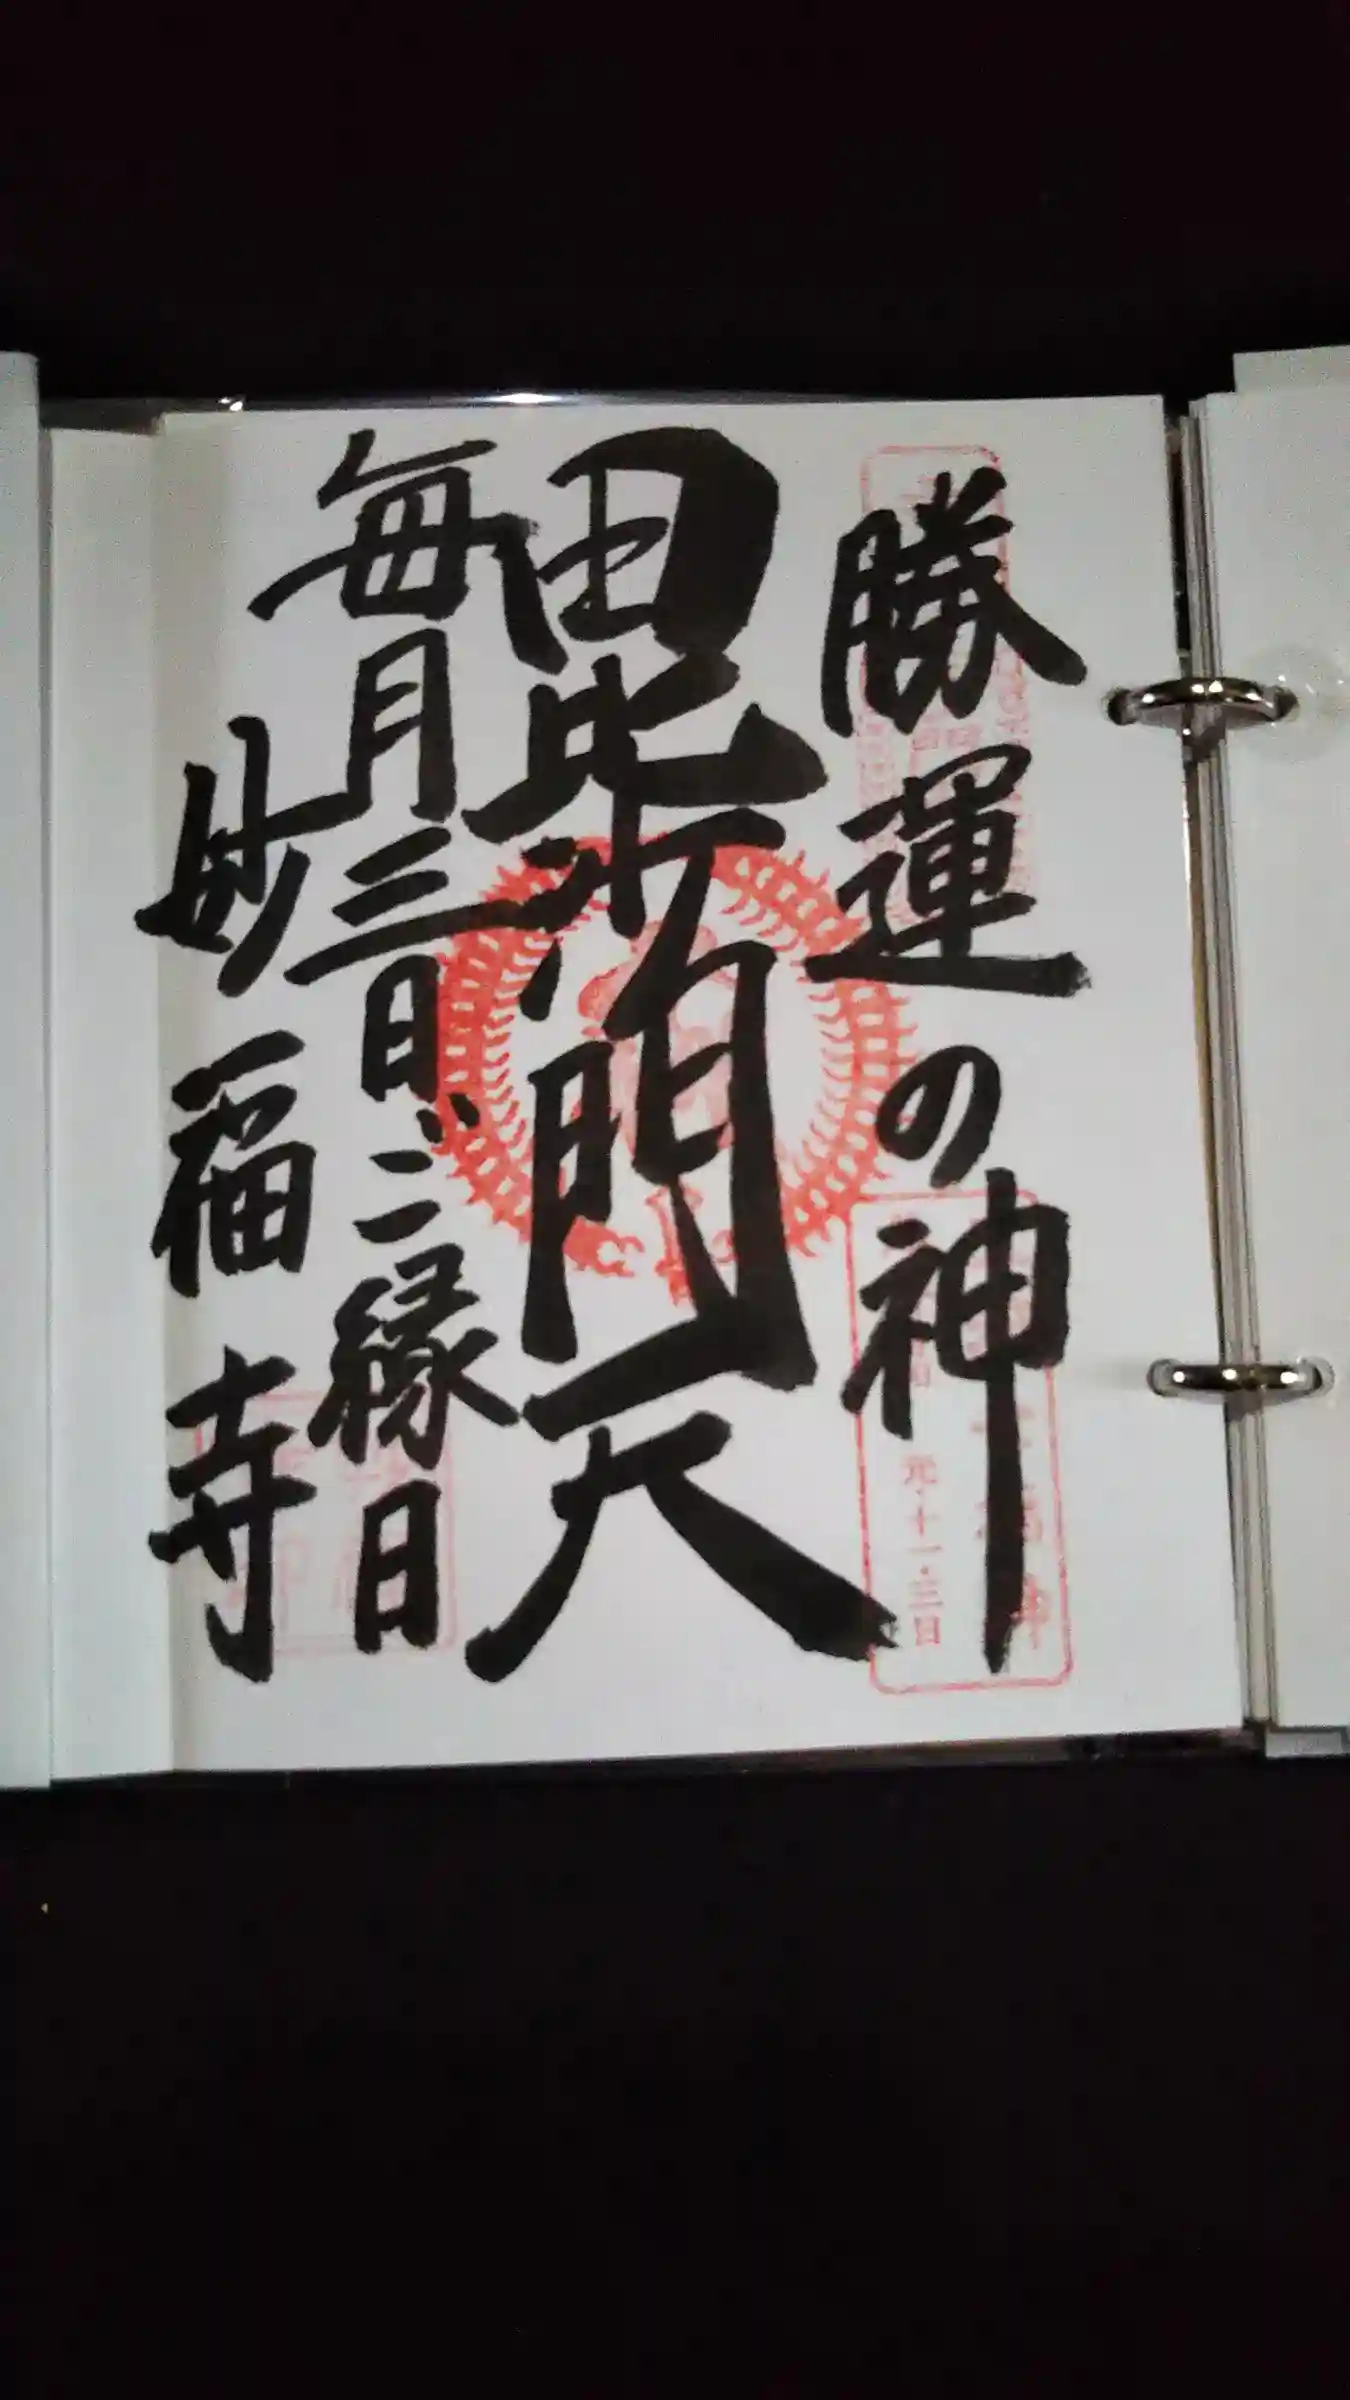 勝運の神
毘沙門天
毎月三日、ご縁日
妙福寺
元・十一・三日